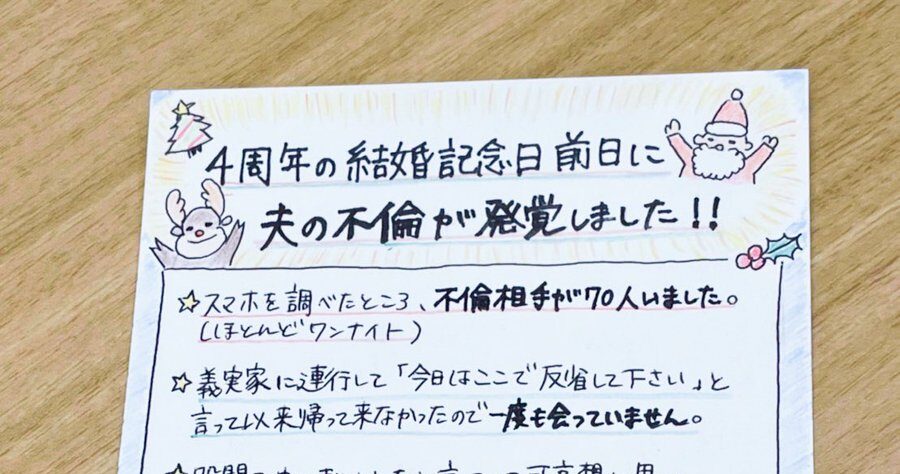 4周年の結婚記念日前日に
夫の不倫が発覚しました!!
☆スマホを調べたところ、不倫相手が70人いました。
(ほとんどワンナイト)
☆義実家に連行して「今日はここで反省して下さい」と
言って以来帰って来なかったので一度も会っていません。